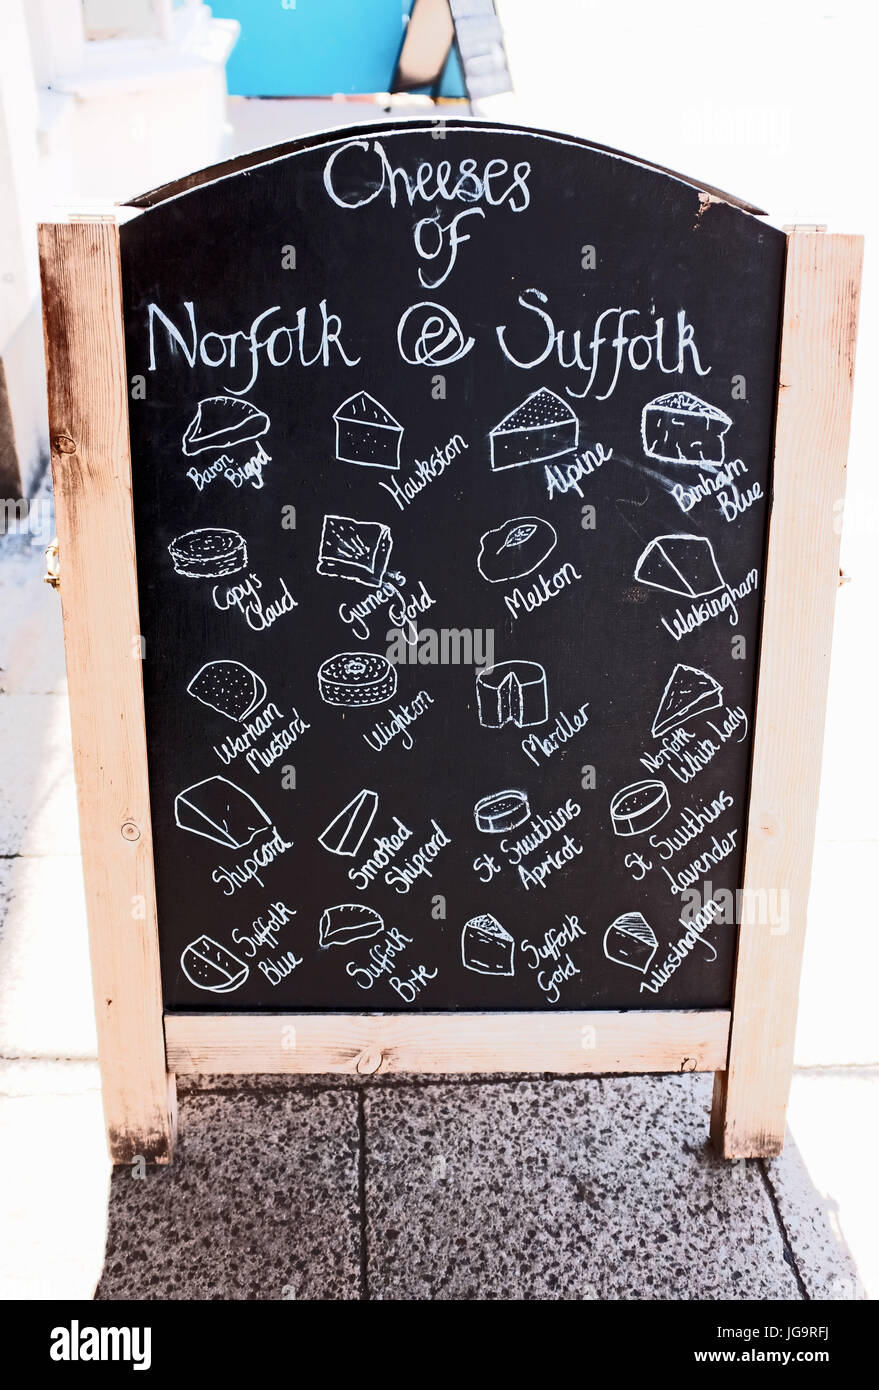 Cheeses
of
Norfolk & Suffolk
Baron
Bigod
Hawkston
Alpine
Binham
Blue
Copy's
Cloud
Gurney's
Gold
Melton
Walsingham
Warham
Mustard
Wighton
Mardler
Norfolk
White Lady
Shipcord
Smoked
Shipcord
St Swithins
Apricot
St Swithins
Lavender
Suffolk
Blue
Suffolk
Brie
Suffolk
Gold
Wissingham
alamy
Image ID: JG9RFJ
www.alamy.com